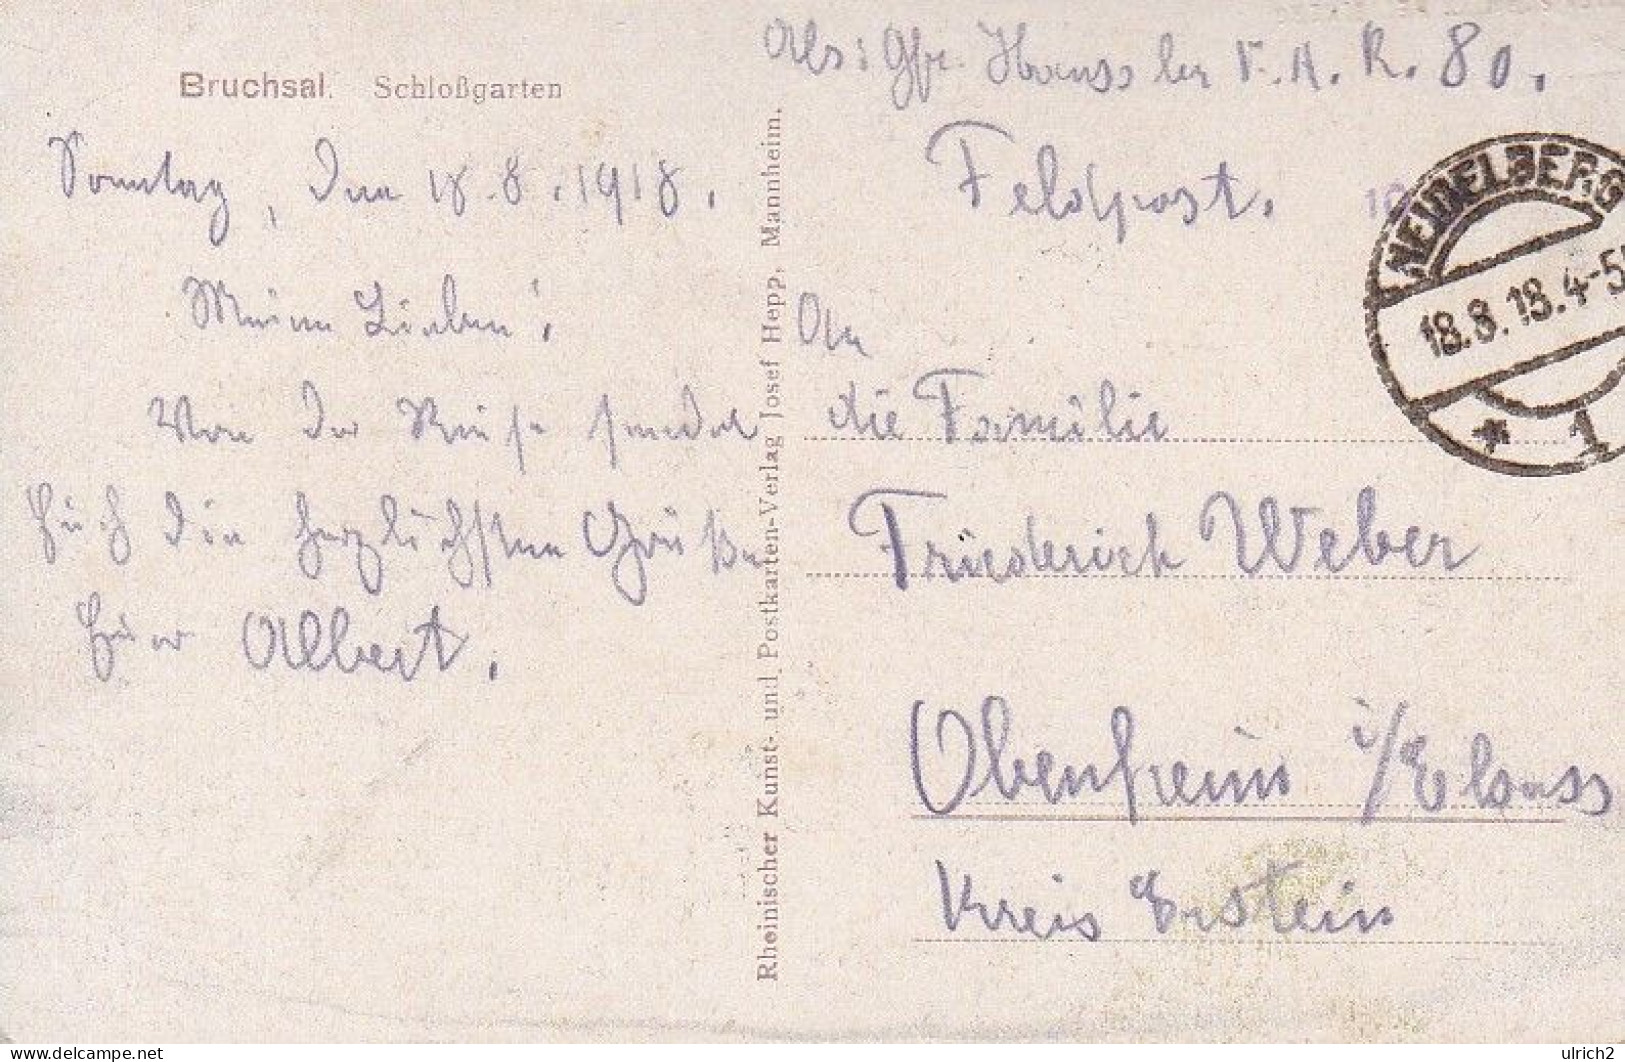 Bruchsal. Schloßgarten
Sonntag, den 18.8.1918.
Meine Lieben!
Von der Reise sendet
Euch die herzlichsten Grüße
Euer Albert.
Rheinischer Kunst- und Postkarten-Verlag Josef Hepp, Mannheim.
Abs: Gfr. F.A.R. 80.
Feldpost.
HEIDELBERG
18.8.18.4-5
* 1
An
die Familie
Friederich Weber
Obenheim i/Elsass
Kreis Erstein
delcampe.net
ulrich2